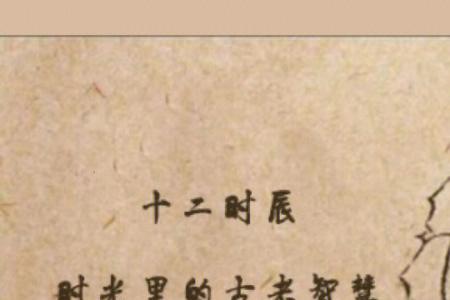 十二时辰
时光里的古老智慧